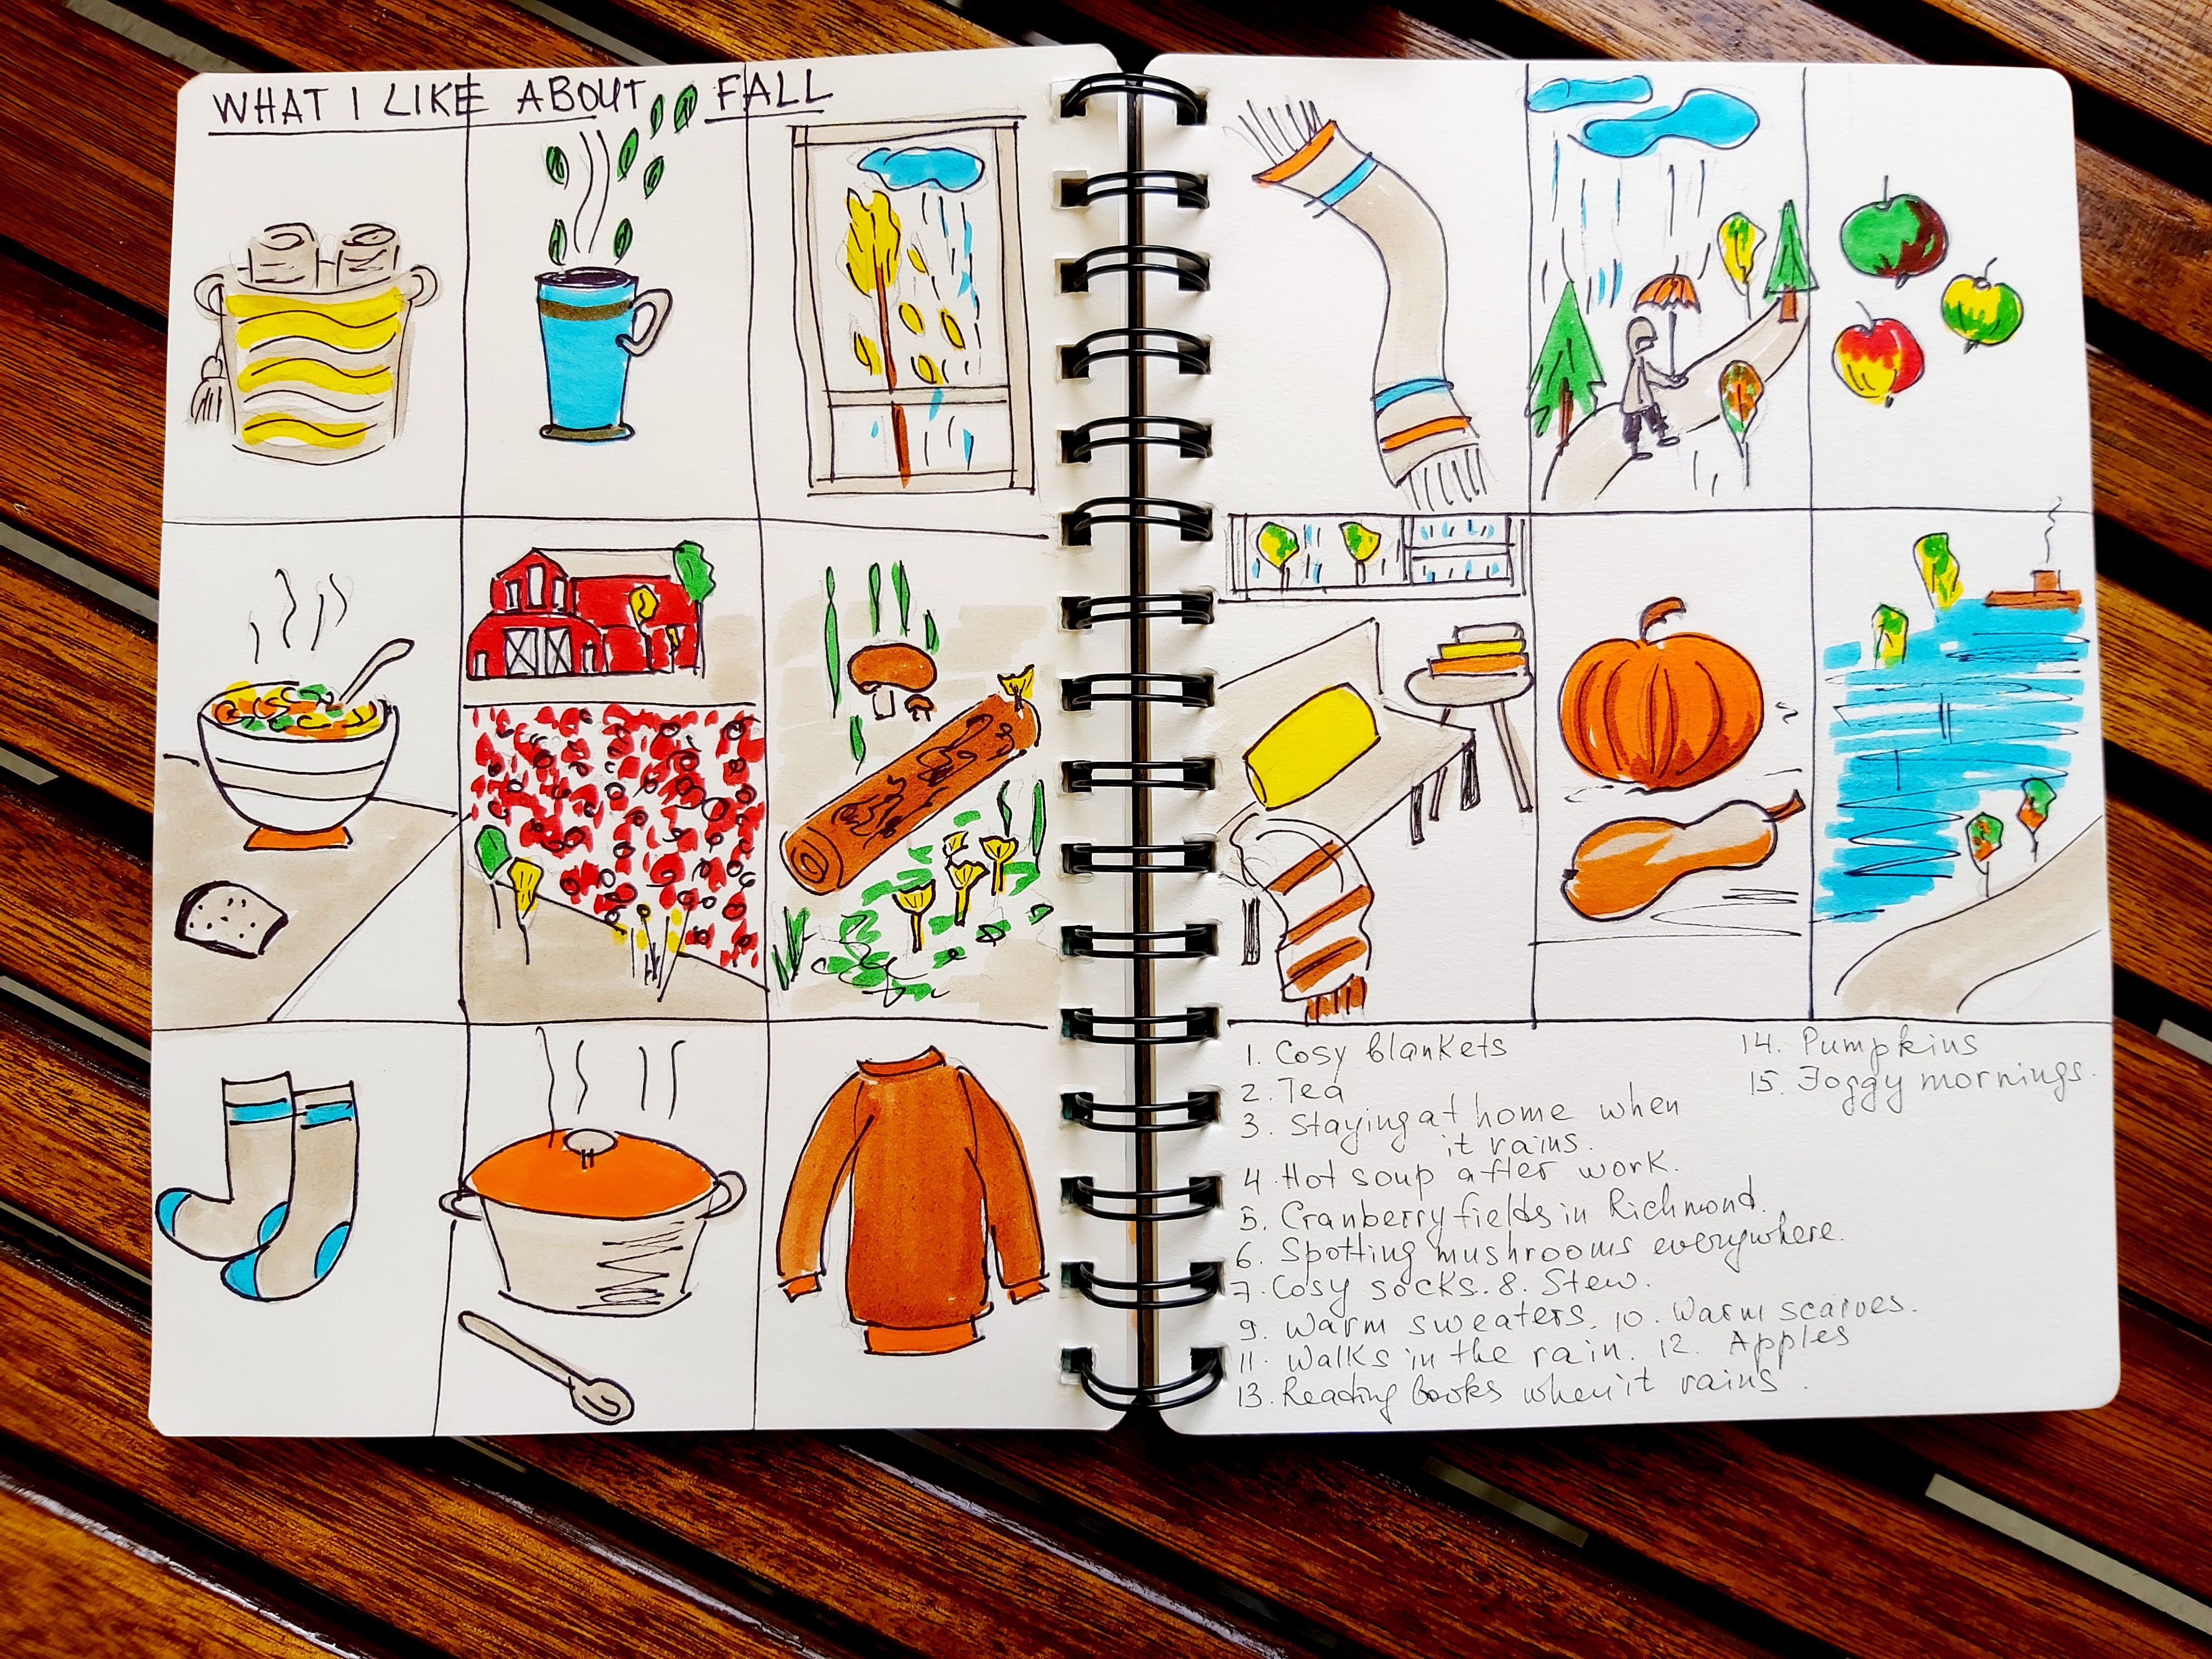 WHAT I LIKE ABOUT FALL
1. Cosy blankets
2. Tea
3. Staying at home when
it rains.
4. Hot soup after work.
5. Cranberry fields in Richmond.
6. Spotting mushrooms everywhere.
7. Cosy socks. 8. Stew.
9. Warm sweaters. 10. Warm scarves.
11. Walks in the rain. 12. Apples
13. Reading books when it rains.
14. Pumpkins
15. Foggy mornings.